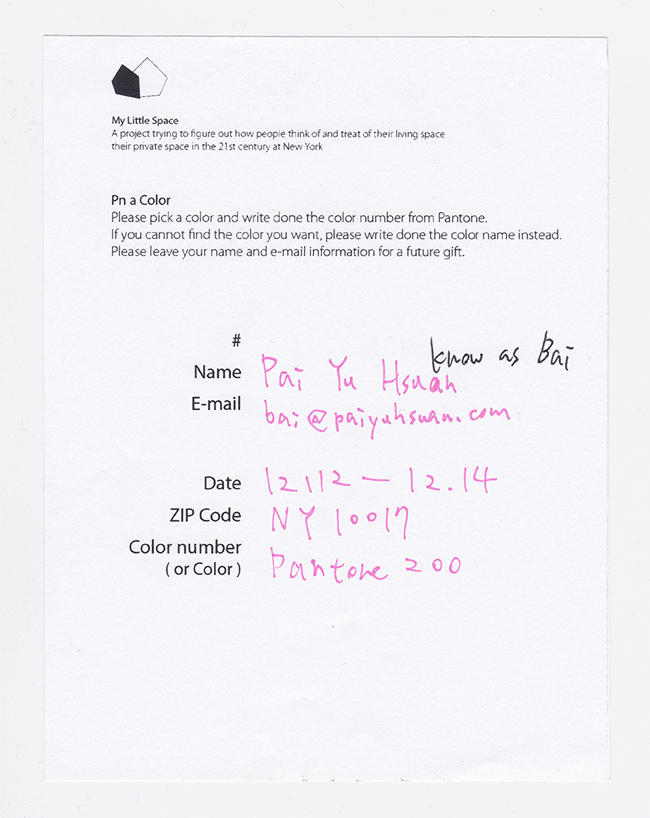 My Little Space
A project trying to figure out how people think of and treat of their living space
their private space in the 21st century at New York
Pn a Color
Please pick a color and write done the color number from Pantone.
If you cannot find the color you want, please write done the color name instead.
Please leave your name and e-mail information for a future gift.
#
know as Bai
Name Pai Yu Hsuan
E-mail bai@paiyuhsuan.com
Date 12112 — 12.14
ZIP Code NY 10017
Color number
( or Color ) Pantone 200